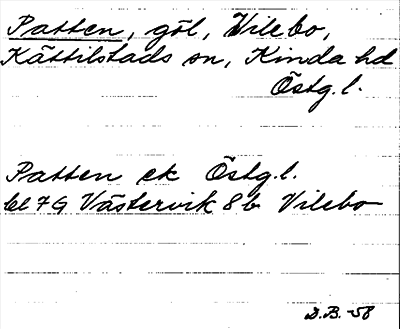 Patten, göl, Vilebo,
Kättilstads sn, Kinda hd
Östg. l.
Patten ek Östg. l.
bl 7 G Västervik 8 b Vilebo
D.B. -58